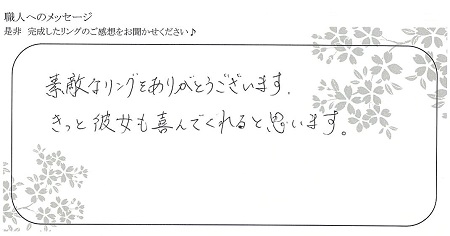 職人へのメッセージ
是非 完成したリングのご感想をお聞かせください♪
素敵なリングをありがとうございます.
きっと彼女も喜んでくれると思います。